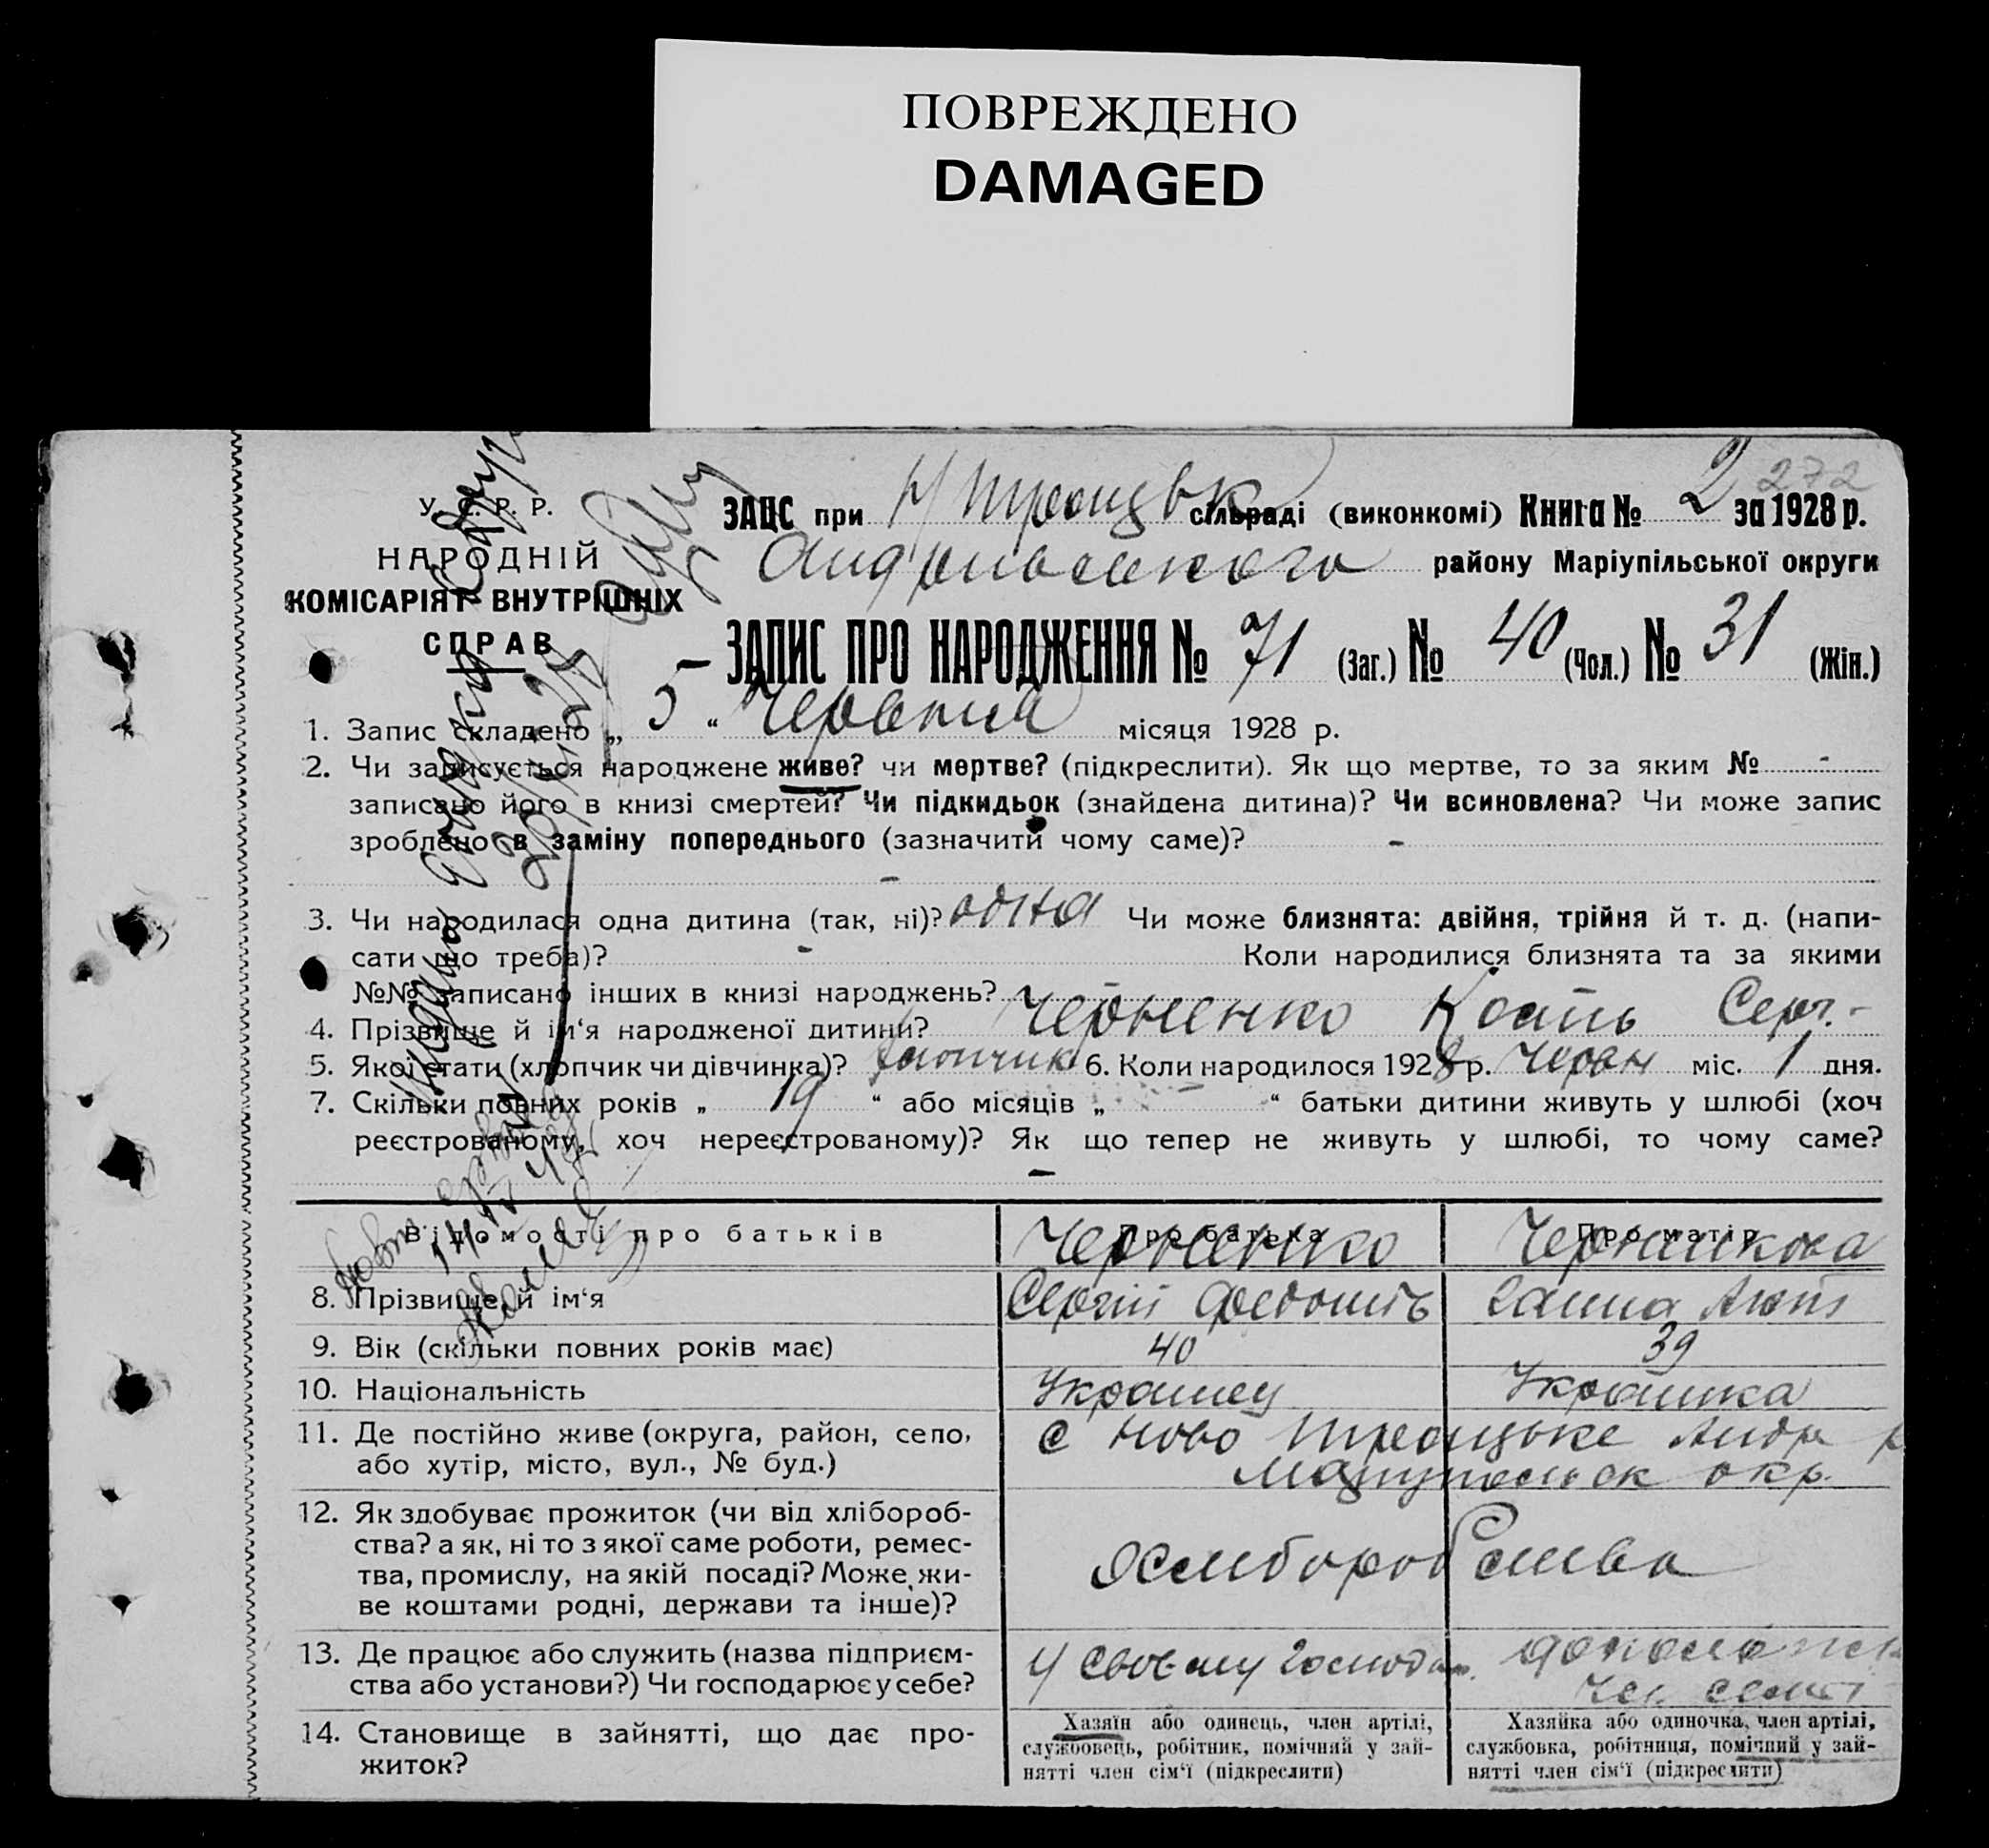 ПОВРЕЖДЕНО
DAMAGED
272
У. С. Р. Р.
НАРОДНІЙ
КОМІСАРІЯТ ВНУТРІШНІХ
СПРАВ
ЗАЦС при Н/Троицьк сільраді (виконкомі) Книга № 2 за 1928 р.
району Маріупільської округи
ЗАПИС ПРО НАРОДЖЕННЯ № 71 (Заг.) № 40 (Чол.) № 31 (Жін.)
1. Запис складено „ 5 “ Червеня місяця 1928 р.
2. Чи записується народжене живе? чи мертве? (підкреслити). Як що мертве, то за яким № -
записано його в книзі смертей? Чи підкидьок (знайдена дитина)? Чи всиновлена? Чи може запис
зроблено в заміну попереднього (зазначити чому саме)? -
-
3. Чи народилася одна дитина (так, ні)? одна Чи може близнята: двійня, трійня й т. д. (напи-
сати що треба)? - Коли народилися близнята та за якими
№№ записано інших в книзі народжень?
4. Прізвище й ім‘я народженої дитини? Черненко Кость Серг.-
5. Якої стати (хлопчик чи дівчинка)? хлопчик 6. Коли народилося 1928 р. Червн міс. 1 дня.
7. Скільки повних років „ 19 “ або місяців „ “ батьки дитини живуть у шлюбі (хоч
реєстрованому, хоч нереєстрованому)? Як що тепер не живуть у шлюбі, то чому саме?
-
Відомості про батьків Про батька Про матір
Черненко
8. Прізвище й ім‘я Сергій Ганна
9. Вік (скільки повних років має) 40 39
10. Національність Украинец Украинка
11. Де постійно живе (округа, район, село, с Ново Троицьке Андр р
або хутір, місто, вул., № буд.) окр.
12. Як здобуває прожиток (чи від хлібороб-
ства? а як, ні то з якої саме роботи, ремес-
тва, промислу, на якій посаді? Може жи-
ве коштами родні, держави та інше)?
Хлиборобства
13. Де працює або служить (назва підприєм- У своему господ.
ства або установи?) Чи господарює у себе?
14. Становище в зайнятті, що дає про-
житок?
Хазяїн або одинець, член артілі,
службовець, робітник, помічний у зай-
нятті член сім‘ї (підкреслити)
Хазяйка або одиночка, член артілі,
службовка, робітниця, помічний у зай-
нятті член сім‘ї (підкреслити)